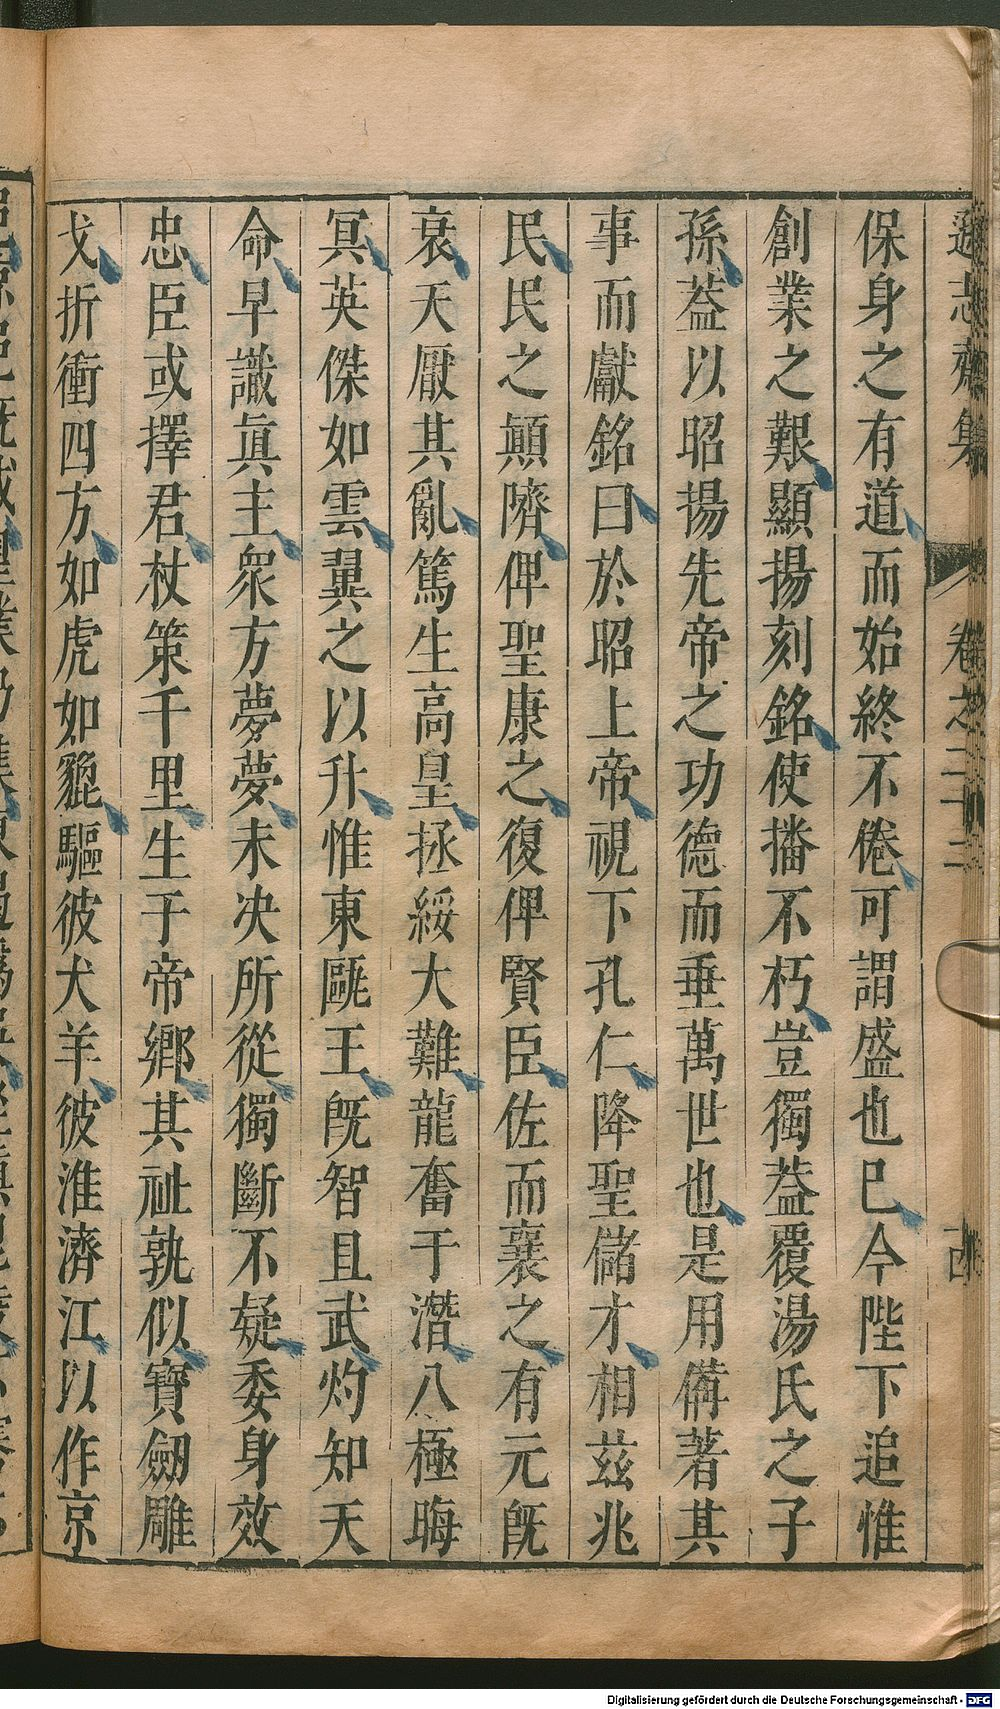 保身之有道而始終不倦可謂盛也已今陛下追惟
創業之艱顯揚刻銘使播不朽豈獨葢覆湯氏之子
孫葢以昭揚先帝之功德而垂萬世也是用備著其
事而獻銘曰於昭上帝視下孔仁降聖儲才相茲兆
民民之顛隮俾聖康之復俾賢臣佐而襄之有元旣
衰天厭其亂篤生高皇拯綏大難龍奮于潛八極晦
冥英傑如雲翼之以升惟東甌王旣智且武灼知天
命早識眞主衆方夢夢未决所從獨斷不疑委身效
忠臣或擇君杖策千里生于帝鄉其祉孰似寶劒雕
戈折衝四方如虎如貔驅彼犬羊彼淮濟江以作京
卷之二十二
Digitalisierung gefördert durch die Deutsche Forschungsgemeinschaft - DFG